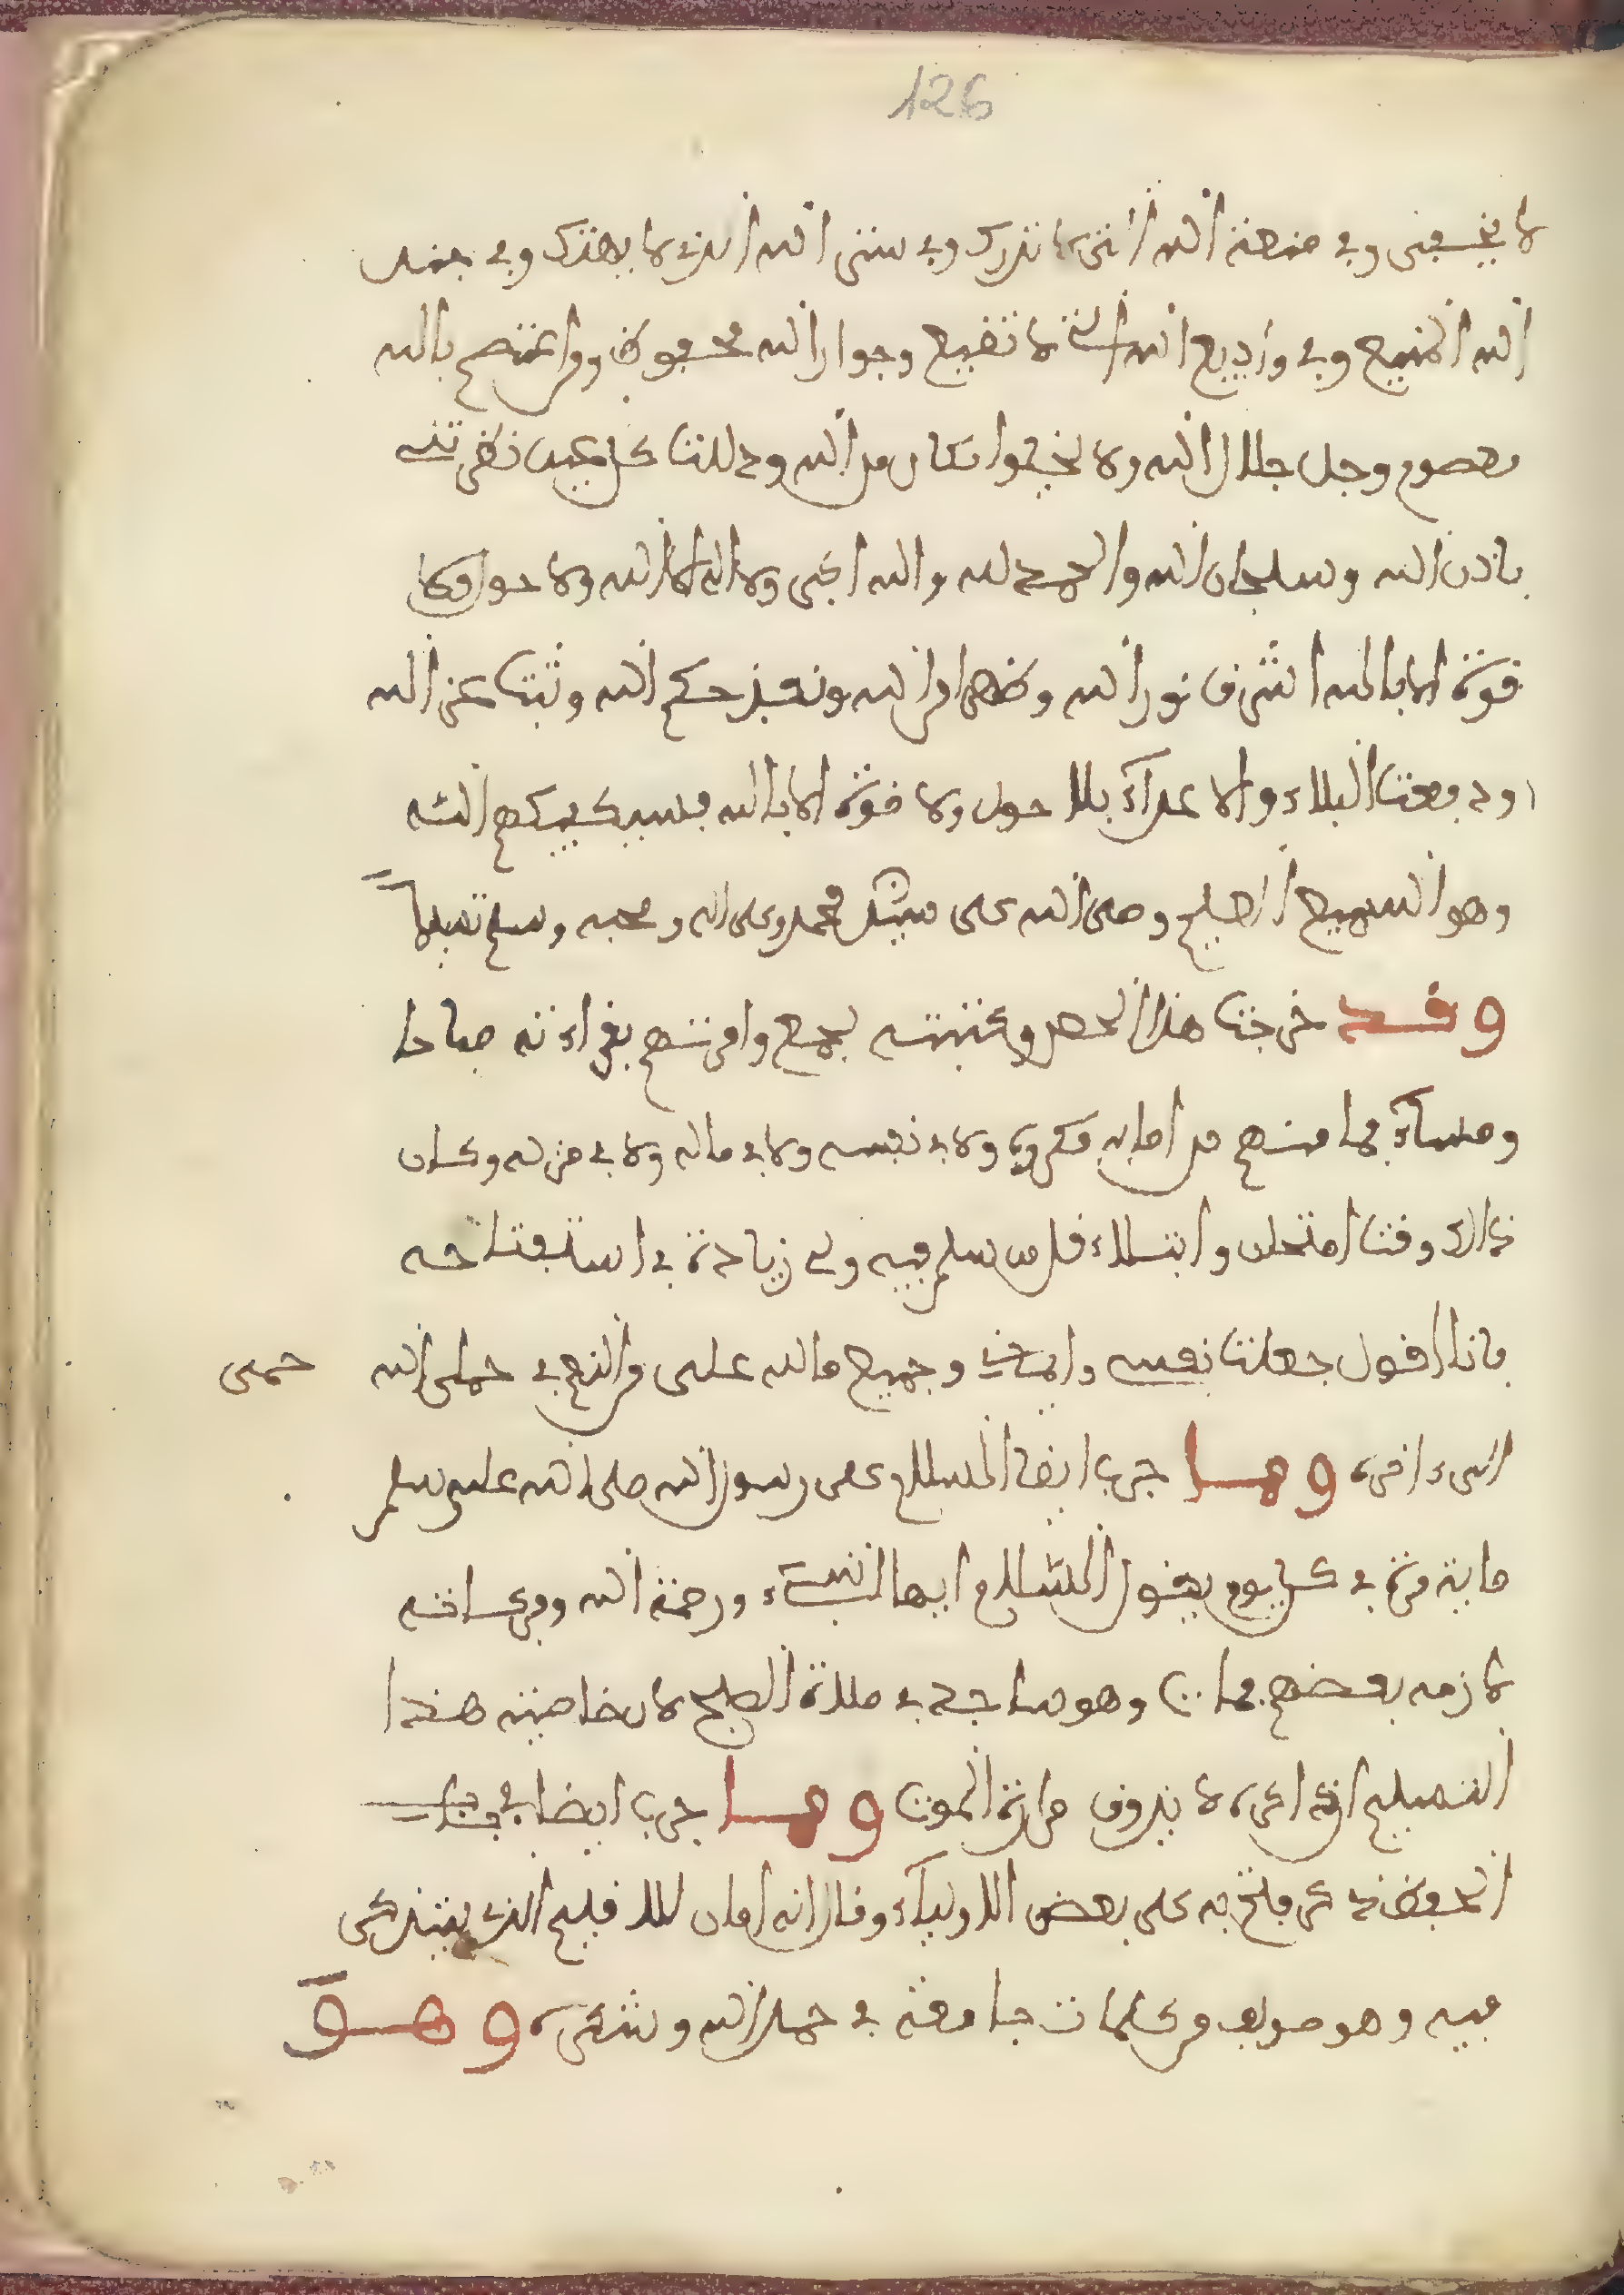 126
لا يخفى وفي منعة الله التي لا تدرك وفي ستر الله الذي لا يهتك وفي جند
الله المنيع وفي ودايع الله التي لا تضيع وجوار الله محفوظ ومن اعتصم بالله
معصوم وجل جلال الله ولا يخلوا مكان من الله وذلت كل عين نظرتنه
باذن الله وسبحان الله والحمد لله والله اكبر ولا اله الا الله ولا حول ولا
قوة الا بالله اشرق نور الله وظهر امر الله ونفذ حكم الله وثبت عز الله
ودفعت البلاء والاعداء بلا حول ولا قوة الا بالله فسيكفيكهم الله
وهو السميع العليم وصلى الله على سيدنا محمد وعلى اله وصحبه وسلم تسليما
وقد خرجت هذا الحصن وكتبته لجمع وامرتهم بقراءته صباحا
ومساء فما منهم من اصابه مكروه ولا في نفسه ولا في ماله ولا في منزله وكان
ذالك وقت امتحان وابتلاء قل من سلم فيه ولي زيادة في استفتاحه
فانا اقول جعلت نفسي وايماني وجميع ما لله علي من النعم في حمى الله حمى
الى ءاخره ومما جرب ايضا السلام على رسول الله صلى الله عليه وسلم
ماية مرة في كل يوم يقول السلام ايها النبيء ورحمة الله وبركاته
لازمه بعضهم فمات وهو ساجد في صلاة الصبح لان خاصيته هذا
التسليم ان ذاكره لا يذوق مرارة الموت ومما جرب ايضا في
الحفظ ذكر فتح به على بعض الاولياء وقال انه امان للاقليم الذي يذكر
فيه وهو مولف من كلمات جامعة في حمد الله وشكره وهو